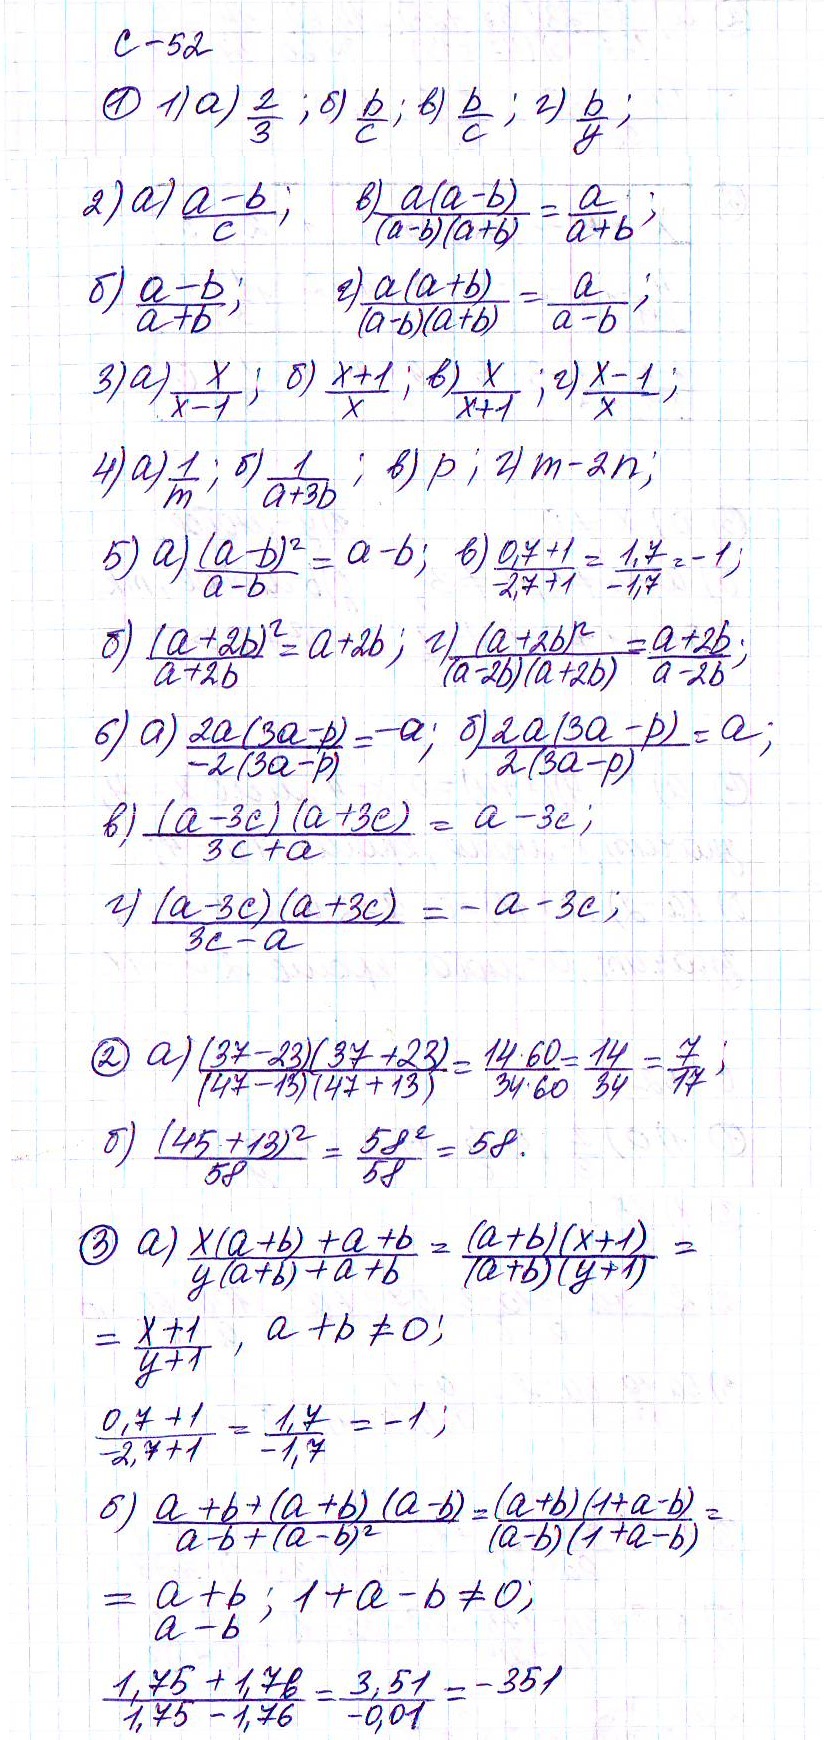 С-52
① 1) а) 2/3; б) b/c; в) b/c; г) b/y;
2) а) (a-b)/c; в) a(a-b)/((a-b)(a+b)) = a/(a+b);
б) (a-b)/(a+b); г) a(a+b)/((a-b)(a+b)) = a/(a-b);
3) а) x/(x-1); б) (x+1)/x; в) x/(x+1); г) (x-1)/x;
4) а) 1/m; б) 1/(a+3b); в) p; г) m-2n;
5) а) (a-b)²/(a-b) = a-b; в) (0,7+1)/(-2,7+1) = 1,7/(-1,7) = -1;
б) (a+2b)²/(a+2b) = a+2b; г) (a+2b)²/((a-2b)(a+2b)) = (a+2b)/(a-2b);
6) а) 2a(3a-p)/(-2(3a-p)) = -a; б) 2a(3a-p)/(2(3a-p)) = a;
в) (a-3c)(a+3c)/(3c+a) = a-3c;
г) (a-3c)(a+3c)/(3c-a) = -a-3c;
② а) (37-23)(37+23)/((47-13)(47+13)) = 14·60/(34·60) = 14/34 = 7/17;
б) (45+13)²/58 = 58²/58 = 58.
③ а) (x(a+b)+a+b)/(y(a+b)+a+b) = (a+b)(x+1)/((a+b)(y+1)) =
= (x+1)/(y+1), a+b≠0;
(0,7+1)/(-2,7+1) = 1,7/(-1,7) = -1;
б) (a+b+(a+b)(a-b))/(a-b+(a-b)²) = (a+b)(1+a-b)/((a-b)(1+a-b)) =
= (a+b)/(a-b); 1+a-b≠0;
(1,75+1,76)/(1,75-1,76) = 3,51/(-0,01) = -351